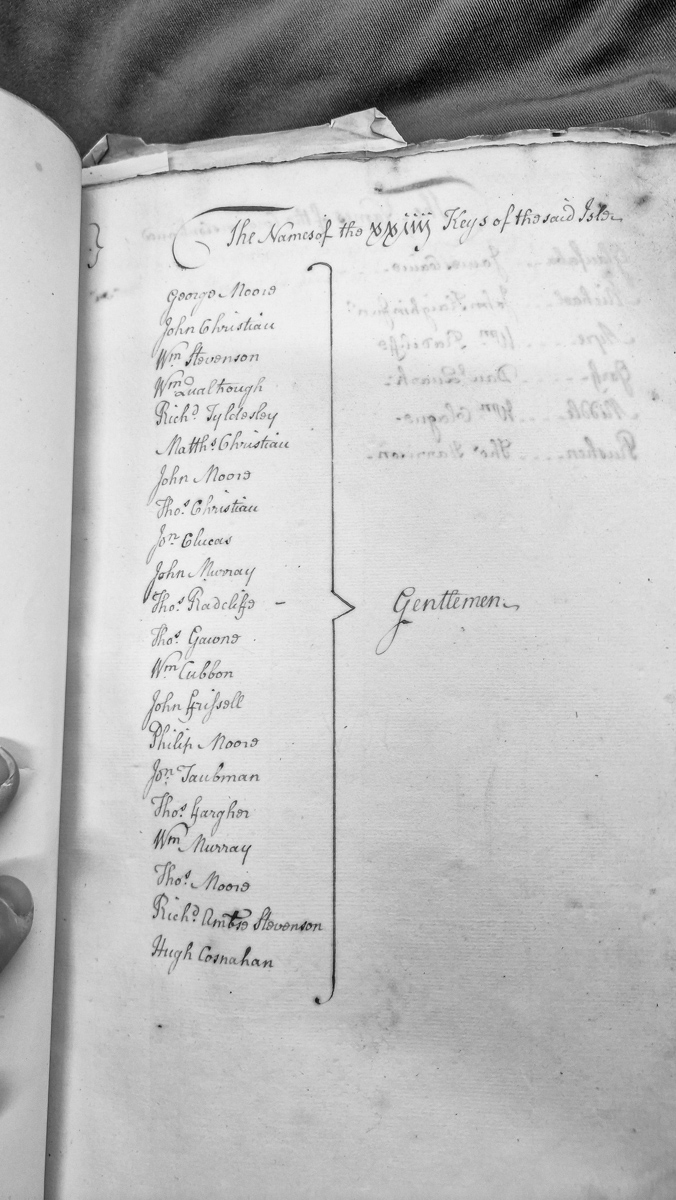 The Names of the xxiiij Keys of the said Isle
George Moore
John Christian
Wm Stevenson
Wm Qualtrough
Richd Tyldesley
Matths Christian
John Moore
Thos Christian
Jon Clucas
John Murray
Thos Radcliffe -
Thos Gawne
Wm Cubbon
John Frissell
Philip Moore
Jon Taubman
Thos Fargher
Wm Murray
Thos Moore
Richd Ambre Stevenson
Hugh Cosnahan
Gentlemen